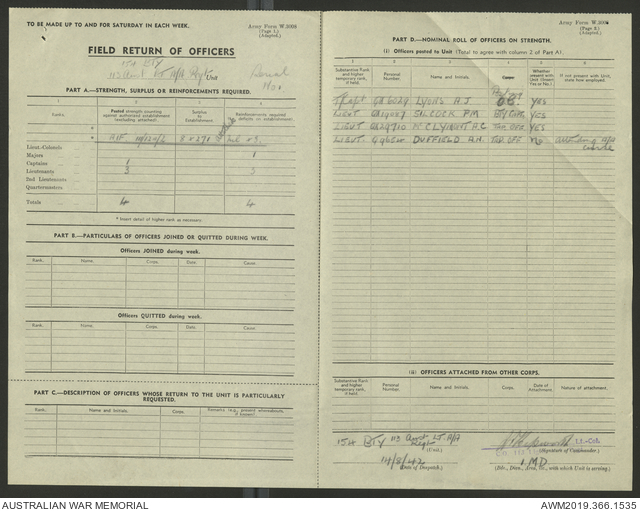 TO BE MADE UP TO AND FOR SATURDAY IN EACH WEEK.
Army Form W.3008
(Page 1.)
(Adapted.)
FIELD RETURN OF OFFICERS
15H BTY
113 Aust LT A/A Regt Unit
Serial
No.
PART A.—STRENGTH, SURPLUS OR REINFORCEMENTS REQUIRED.
1 2 3 4
Ranks.
Posted strength counting against authorized establishment (excluding attached).
Surplus to Establishment.
Reinforcements required
Lieut.-Colonels
Majors 1
Captains 1
Lieutenants 3 3
2nd Lieutenants
Quartermasters
Totals 4 4
* Insert detail of higher rank as necessary.
PART B.—PARTICULARS OF OFFICERS JOINED OR QUITTED DURING WEEK.
Officers JOINED during week.
Rank. Name. Corps. Date. Cause.
Officers QUITTED during week.
Rank. Name. Corps. Date. Cause.
PART C.—DESCRIPTION OF OFFICERS WHOSE RETURN TO THE UNIT IS PARTICULARLY REQUESTED.
Rank. Name and Initials. Corps. Remarks (e.g., present whereabouts if known).
Army Form W.3008
(Page 2.)
(Adapted.)
PART D.—NOMINAL ROLL OF OFFICERS ON STRENGTH.
(i) Officers posted to Unit (Total to agree with column 2 of Part A).
Substantive Rank and higher temporary rank, if held.
Personal Number.
Name and Initials.
Corps.
Whether present with Unit (Insert Yes or No.)
If not present with Unit, state how employed.
LYONS A.J YES
LIEUT YES
LIEUT YES
LIEUT. DUFFIELD A.H. No attending A/A
(ii) OFFICERS ATTACHED FROM OTHER CORPS.
Substantive Rank and higher temporary rank, if held.
Personal Number.
Name and Initials.
Corps.
Date of Attachment.
Nature of attachment.
15H BTY 113 Aust LT A/A Regt
(Unit.)
Lt.-Col.
(Signature of Commander.)
14/8/42
(Date of Despatch.)
1.MD
(Div., Dist., Area, etc., with which Unit is serving.)
AUSTRALIAN WAR MEMORIAL
AWM2019.366.1535